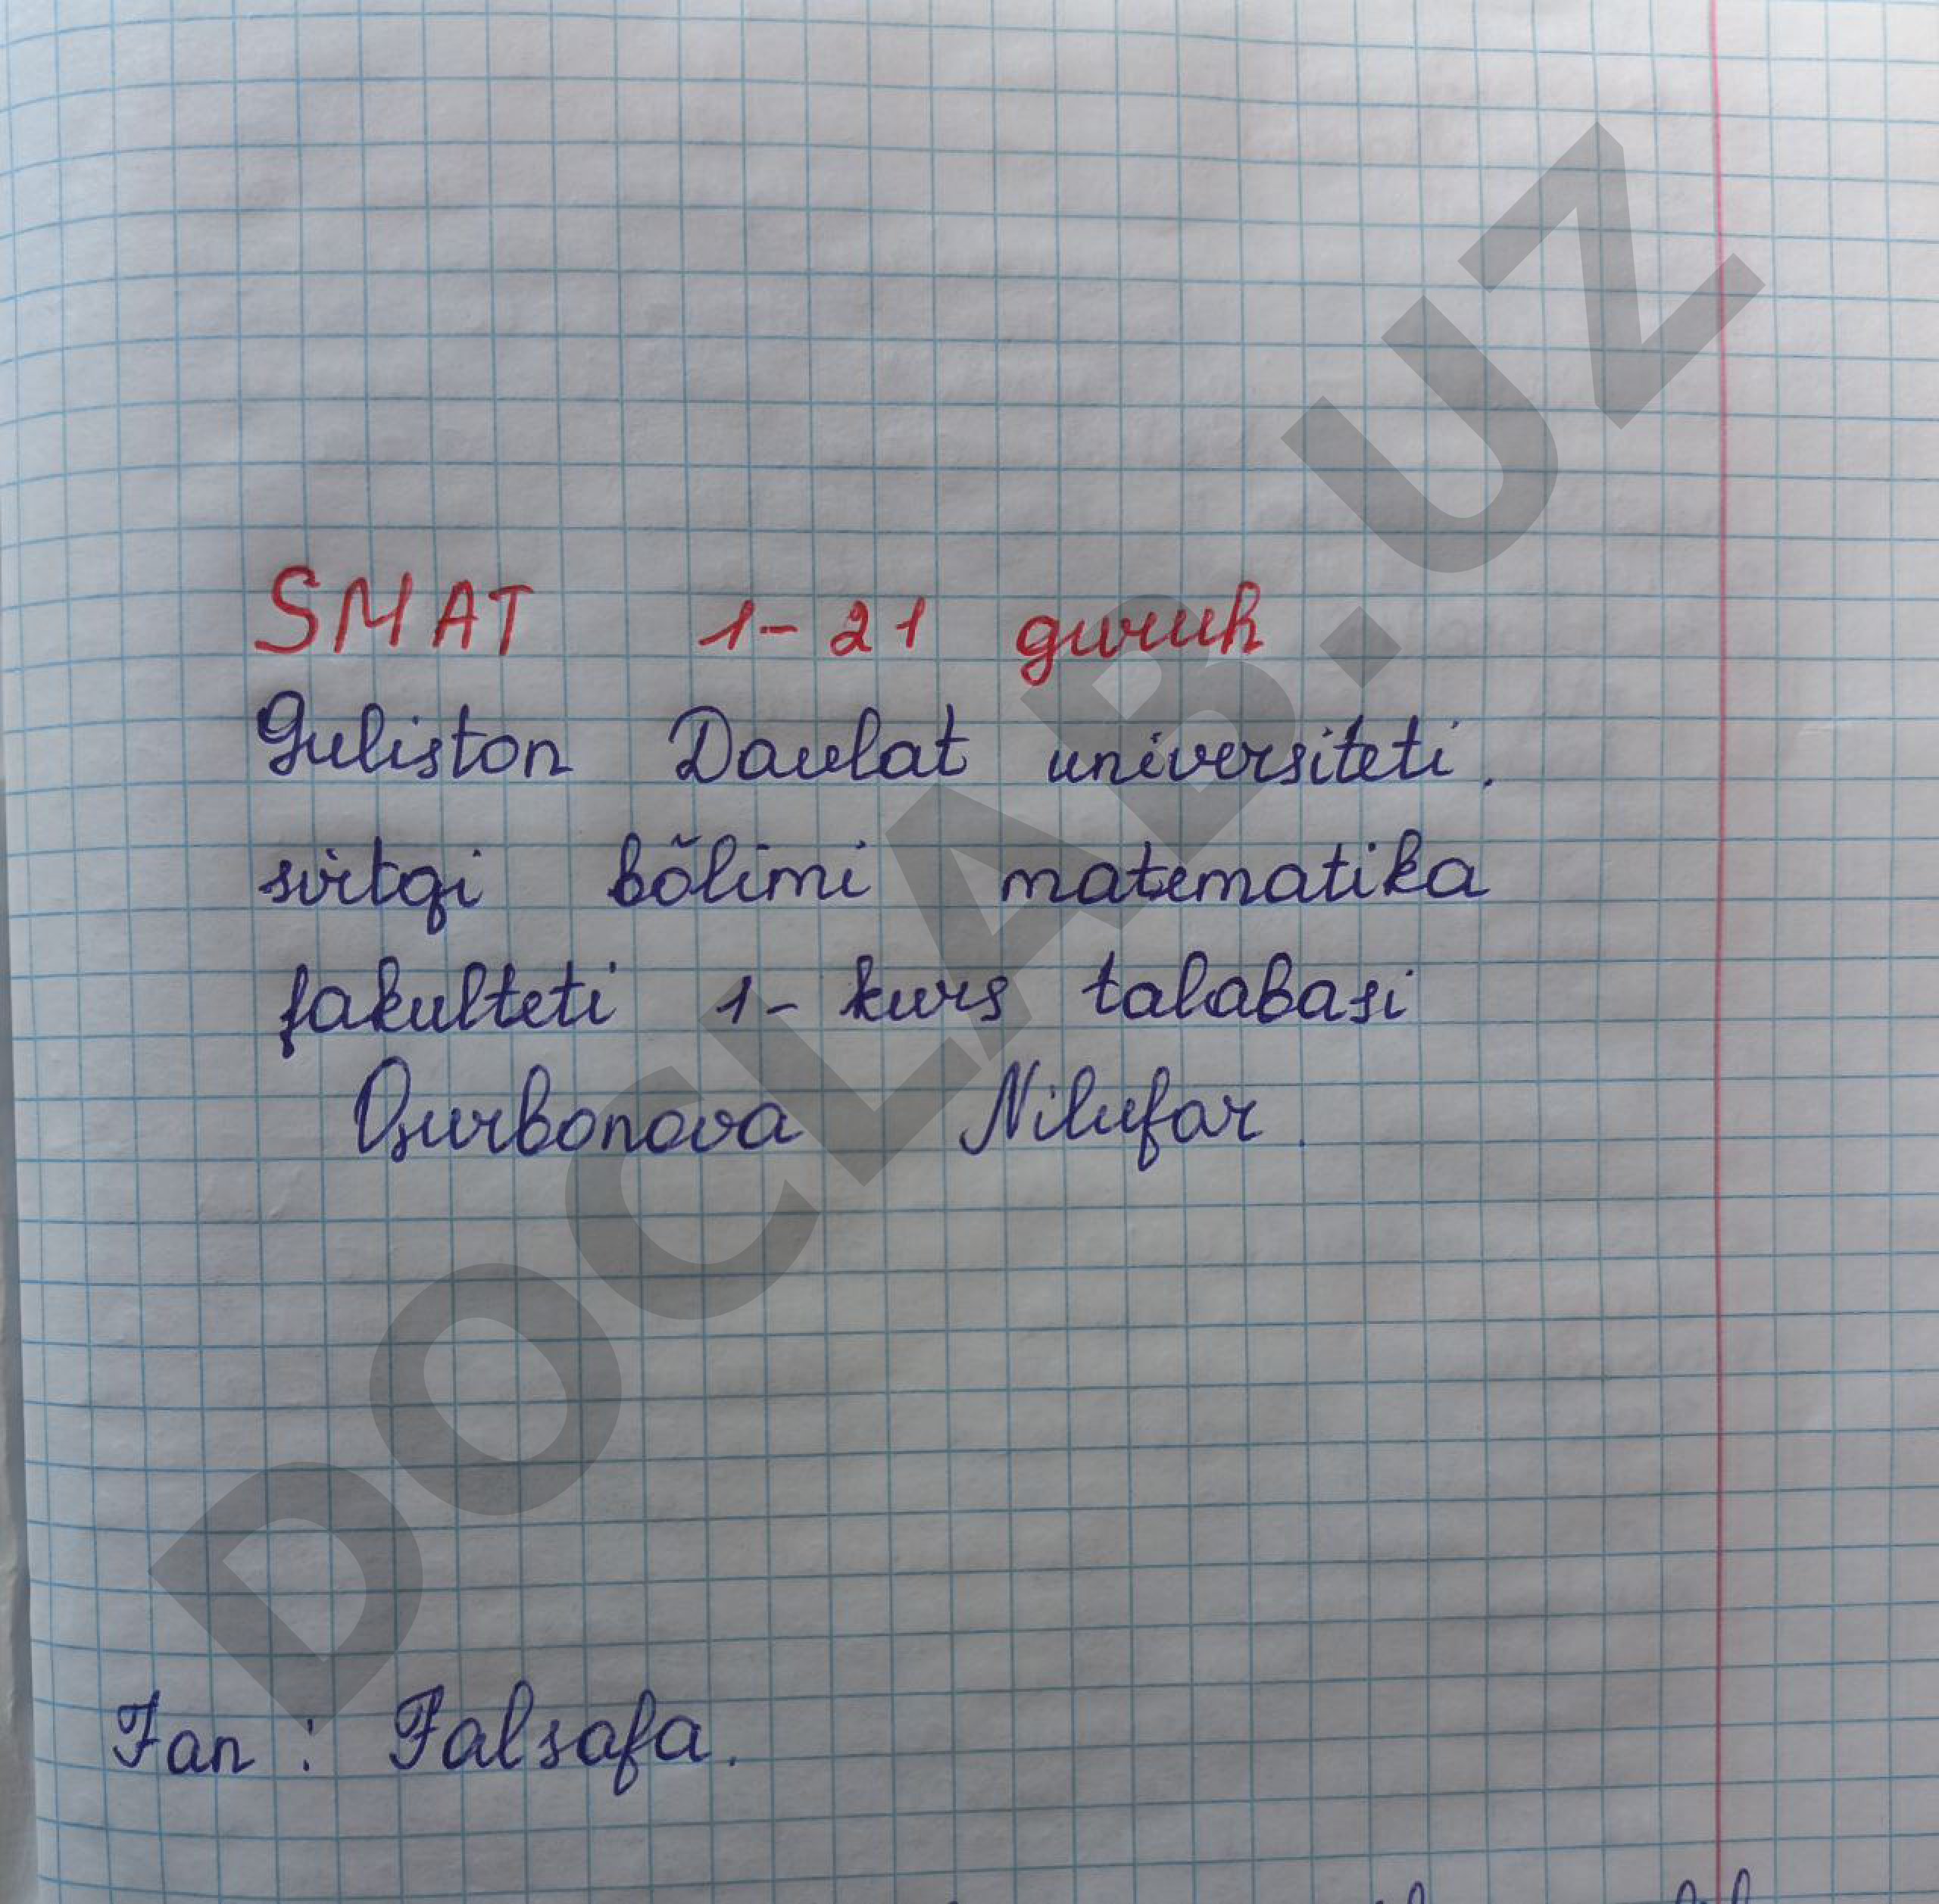 SMAT 1-21 guruh
Guliston Davlat universiteti.
sirtqi bõlimi matematika
fakulteti 1- kurs talabasi
Qurbonova Nilufar.
Fan : Falsafa.
DOCLAB.UZ